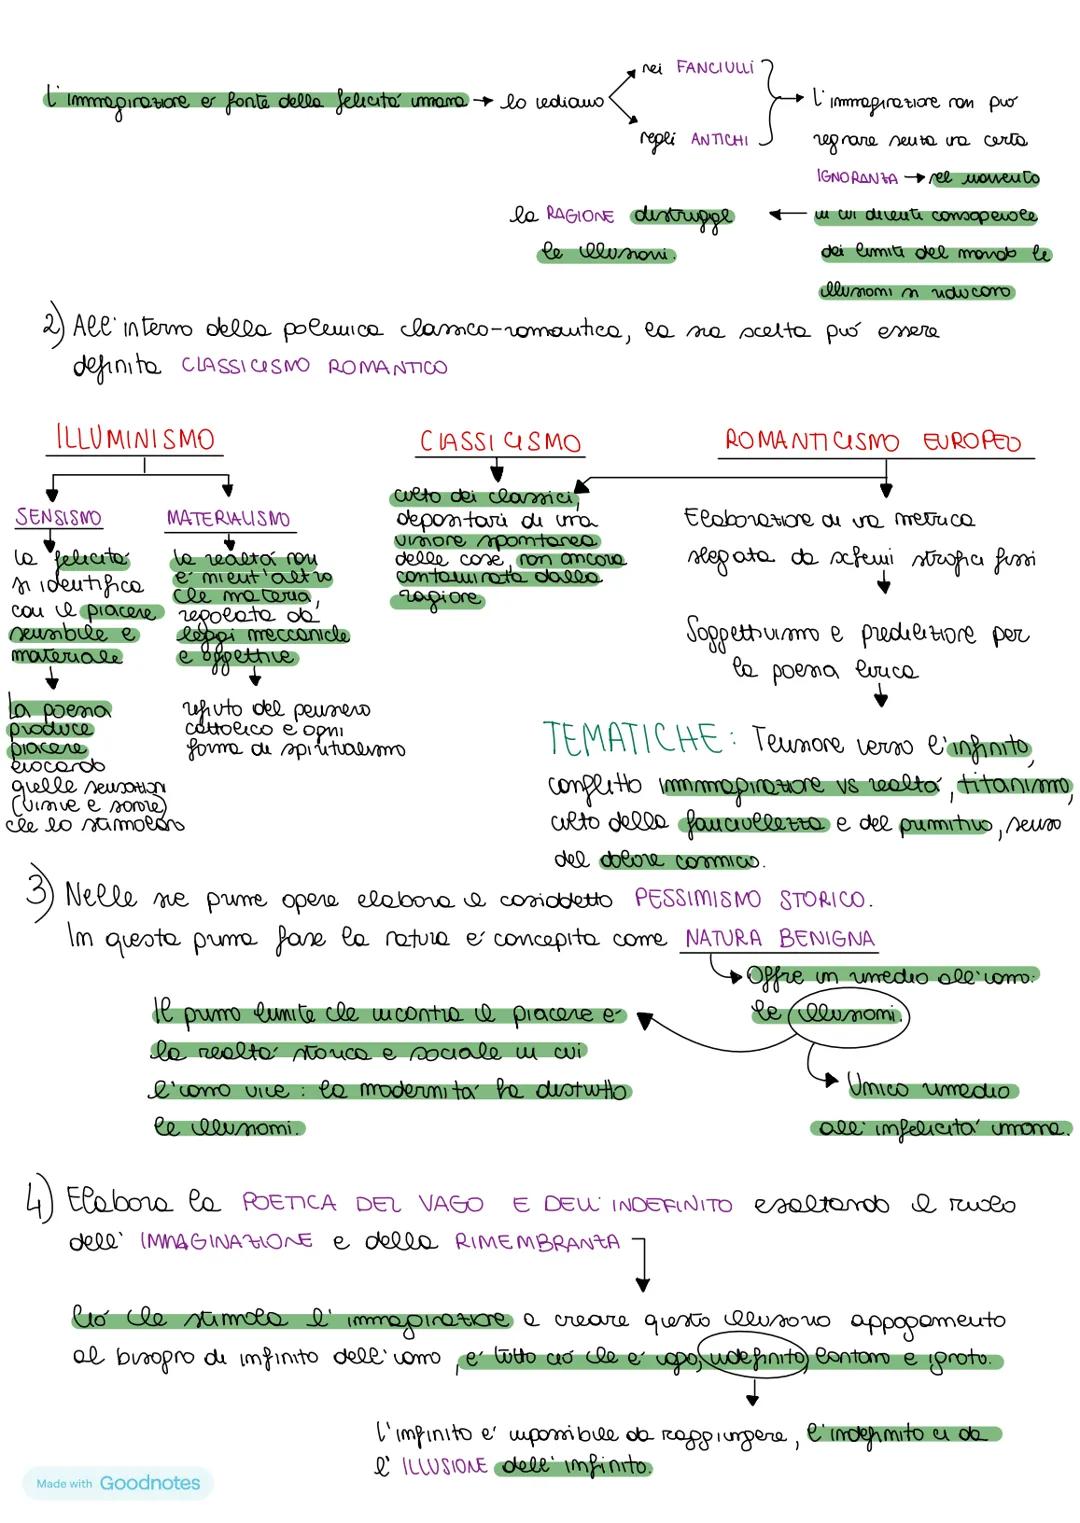 L'immaginazione e' fonte della felicità umana → lo vediamo
nei FANCIULLI
negli ANTICHI
L'immaginazione non può
regnare senza una certa
IGNORANZA → nel momento
in cui diventi consapevole
dei limiti del mondo le
illusioni si riducono
la RAGIONE distrugge
le illusioni.
2) All'interno della polemica classico-romantica, la sua scelta può essere
definita CLASSICISMO ROMANTICO
ILLUMINISMO
SENSISMO
La felicità
si identifica
con il piacere
sensibile e
materiale
La poesia
produce
piacere
evocando
quelle sensazioni
(visive e sonore)
che lo stimolano
MATERIALISMO
La realtà non
e' nient'altro
che materia,
regolata da
leggi meccaniche
e oggettive
rifiuto del pensiero
cattolico e ogni
forma di spiritualismo
CLASSICISMO
culto dei classici,
depositari di una
visione spontanea
delle cose, non ancora
contaminata dalla
ragione
ROMANTICISMO EUROPEO
Elaborazione di una metrica
slegata da schemi strofici fissi
Soggettivismo e predilezione per
la poesia lirica
TEMATICHE: Tensione verso l'infinito,
conflitto immaginazione vs realtà, titanismo,
culto della fanciullezza e del primitivo, senso
del dolore cosmico.
3) Nelle sue prime opere elabora il cosiddetto PESSIMISMO STORICO.
In questa prima fase la natura e' concepita come NATURA BENIGNA
Offre un rimedio all'uomo:
le illusioni.
Il primo limite che incontra il piacere e'
la realtà storica e sociale in cui
l'uomo vive: la modernità ha distrutto
le illusioni.
Unico rimedio
all'infelicità umana.
4) Elabora la POETICA DEL VAGO E DELL'INDEFINITO esaltando il ruolo
dell'IMMAGINAZIONE e della RIMEMBRANZA
Ciò che stimola l'immaginazione a creare questo illusorio appagamento
al bisogno di infinito dell'uomo, e' tutto ciò che e' vago, indefinito, lontano e ignoto.
L'infinito e' impossibile da raggiungere, l'indefinito ci da
l'ILLUSIONE dell'infinito.
Made with Goodnotes